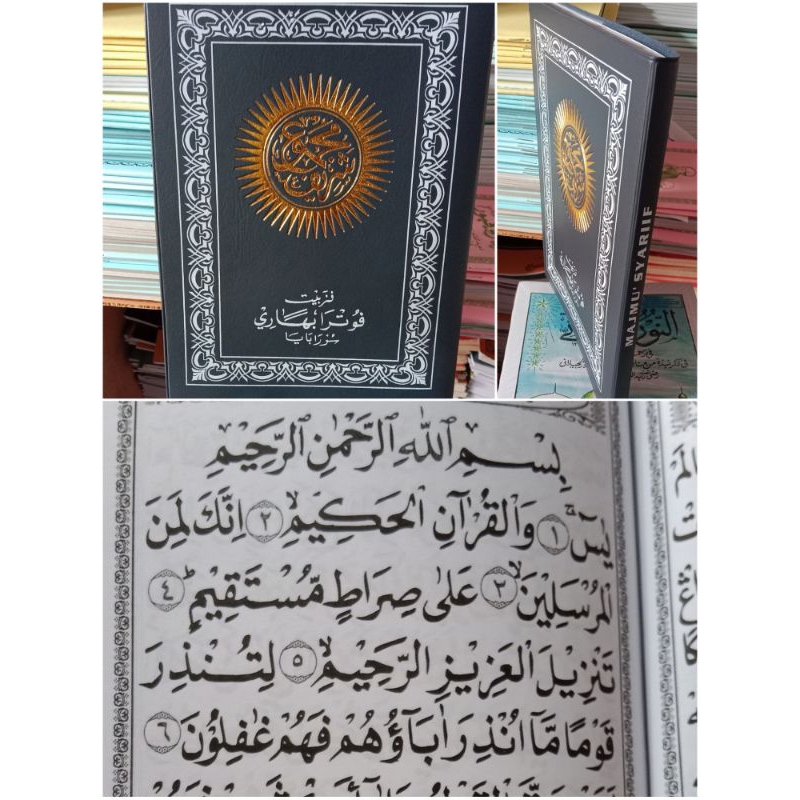 مجموع
شريف
فنربيت
فوترا بهاري
سورابايا
MAJMU' SYARIIF
بِسْمِ اللّٰهِ الرَّحْمٰنِ الرَّحِيْمِ
يٰسۤ ۝١ وَالْقُرْاٰنِ الْحَكِيْمِۙ ۝٢ اِنَّكَ لَمِنَ
الْمُرْسَلِيْنَۙ ۝٣ عَلٰى صِرَاطٍ مُّسْتَقِيْمٍۗ ۝٤
تَنْزِيْلَ الْعَزِيْزِ الرَّحِيْمِۙ ۝٥ لِتُنْذِرَ
قَوْمًا مَّآ اُنْذِرَ اٰبَاۤؤُهُمْ فَهُمْ غٰفِلُوْنَ ۝٦